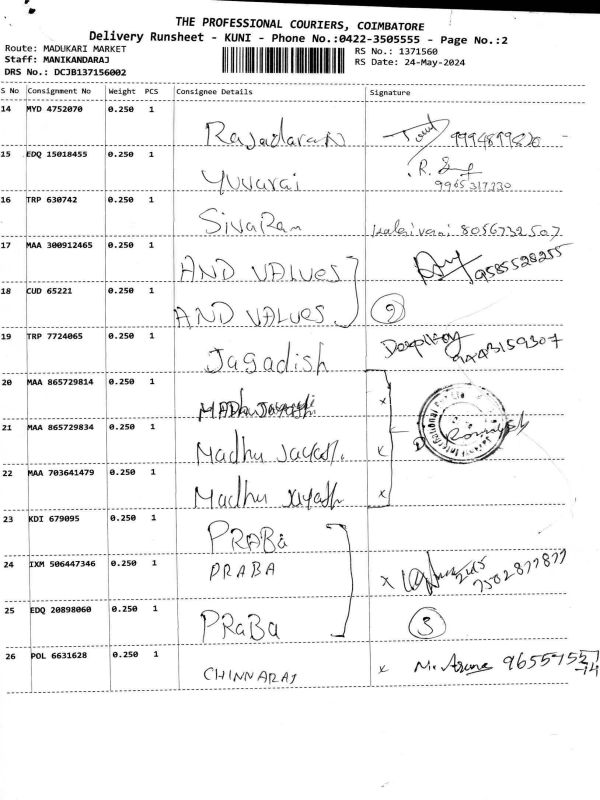 THE PROFESSIONAL COURIERS, COIMBATORE
Delivery Runsheet - KUNI - Phone No.:0422-3505555 - Page No.:2
Route: MADUKARI MARKET
RS No.: 1371560
Staff: MANIKANDARAJ
RS Date: 24-May-2024
DRS No.: DCJB137156002
S No Consignment No Weight PCS Consignee Details Signature
14 MYD 4752070 0.250 1
Rajadaran 9994899820
15 EDQ 15018455 0.250 1
Yuvarai R.
9965317230
16 TRP 630742 0.250 1
SivaRam Kalaivani 8056732507
17 MAA 300912465 0.250 1
AND VALUES 9585528255
18 CUD 65221 0.250 1
AND VALUES 2
19 TRP 7724065 0.250 1
Jagadish 9443159307
20 MAA 865729814 0.250 1
x
21 MAA 865729834 0.250 1
Madhu Jayash. x
22 MAA 703641479 0.250 1
Madhu x
23 KDI 679095 0.250 1
PRABa
24 IXM 506447346 0.250 1
PRABA x 7502877877
25 EDQ 20898060 0.250 1
PRaBa 3
26 POL 6631628 0.250 1
CHINNARAJ x